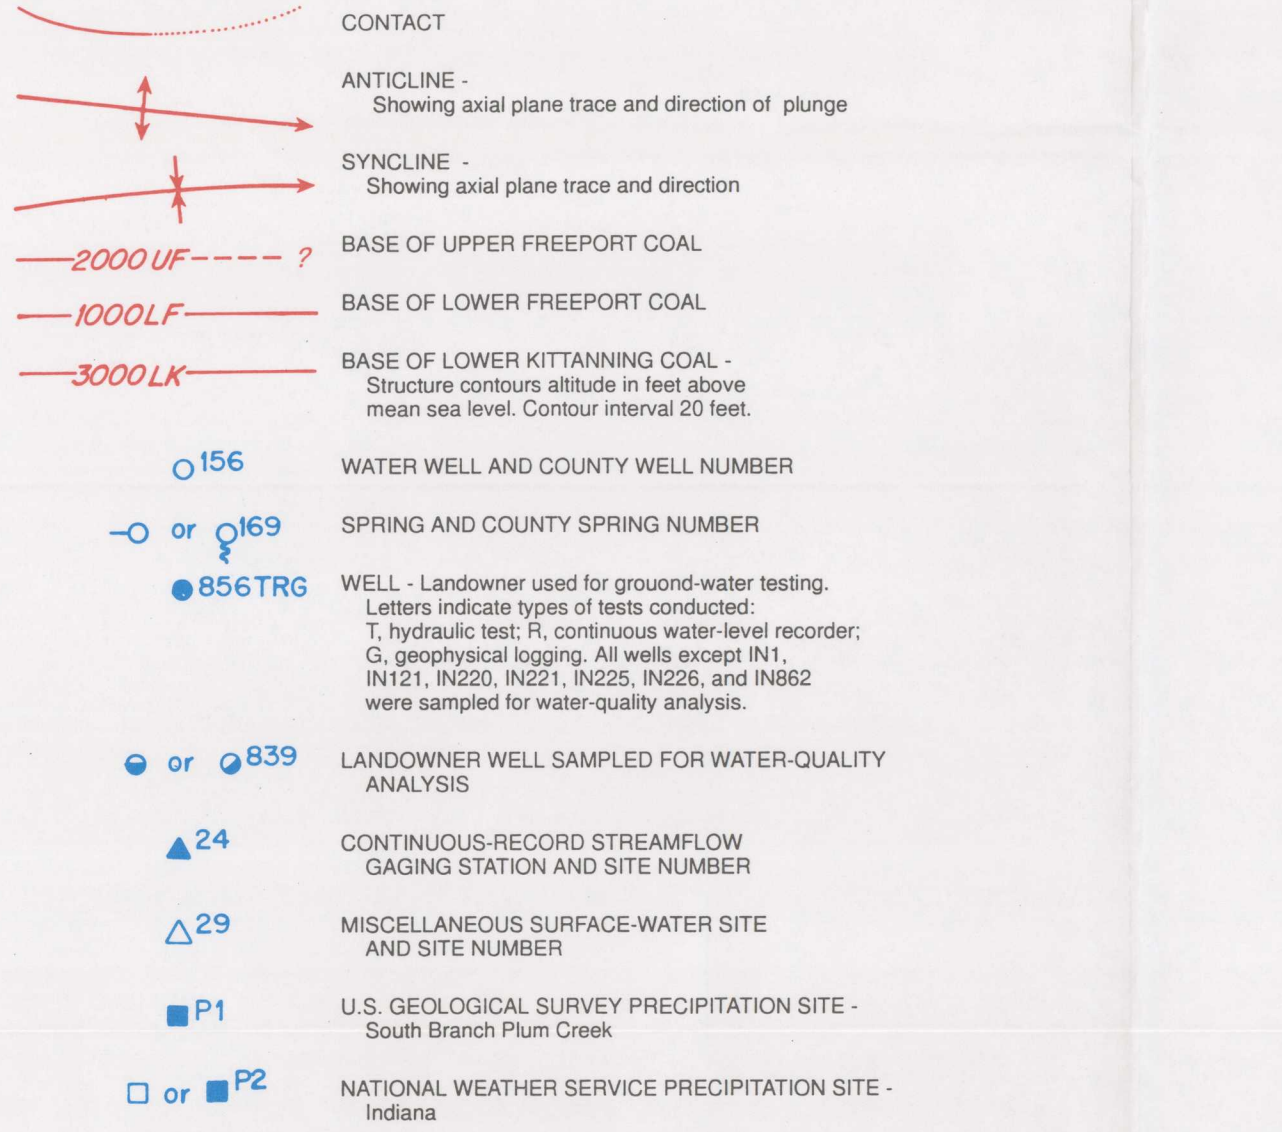 CONTACT
ANTICLINE -
Showing axial plane trace and direction of plunge
SYNCLINE -
Showing axial plane trace and direction
2000 UF ?
BASE OF UPPER FREEPORT COAL
1000LF
BASE OF LOWER FREEPORT COAL
3000LK
BASE OF LOWER KITTANNING COAL -
Structure contours altitude in feet above
mean sea level. Contour interval 20 feet.
156
WATER WELL AND COUNTY WELL NUMBER
or 169
SPRING AND COUNTY SPRING NUMBER
856TRG
WELL - Landowner used for grouond-water testing.
Letters indicate types of tests conducted:
T, hydraulic test; R, continuous water-level recorder;
G, geophysical logging. All wells except IN1,
IN121, IN220, IN221, IN225, IN226, and IN862
were sampled for water-quality analysis.
or 839
LANDOWNER WELL SAMPLED FOR WATER-QUALITY
ANALYSIS
24
CONTINUOUS-RECORD STREAMFLOW
GAGING STATION AND SITE NUMBER
29
MISCELLANEOUS SURFACE-WATER SITE
AND SITE NUMBER
P1
U.S. GEOLOGICAL SURVEY PRECIPITATION SITE -
South Branch Plum Creek
or P2
NATIONAL WEATHER SERVICE PRECIPITATION SITE -
Indiana